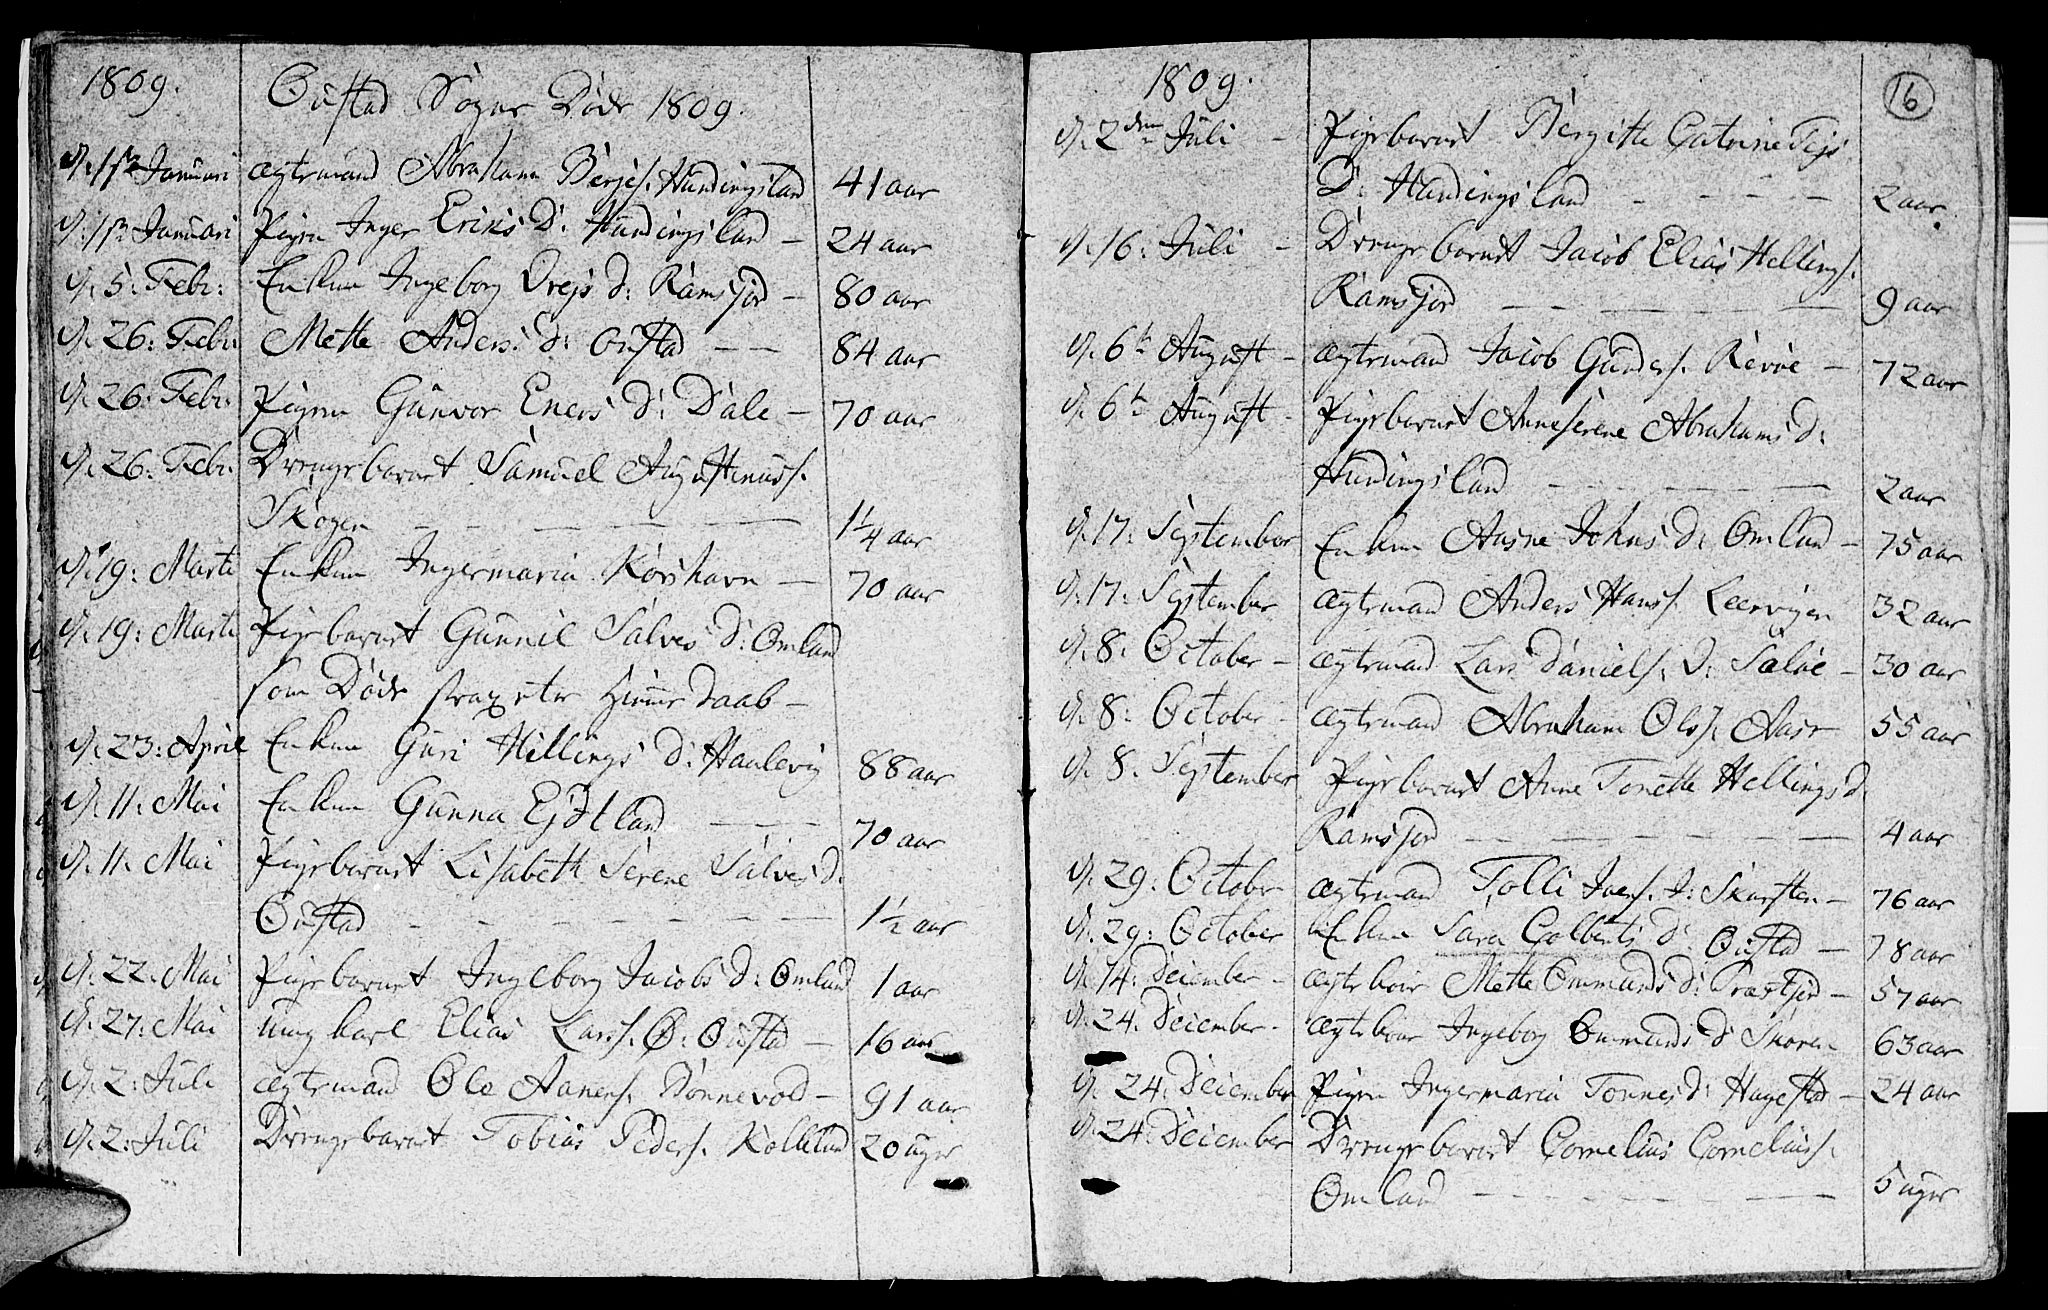 1809.
Oustad Sogns Døde 1809.
d. 1ste Januari ægtemand Abraham Berjes. Hundingsland 41 aar
d: 1ste Januari Pigen Inger Eriks D: Hundingsland – 24 aar
d. 5: Febr: Enken Ingeborg d: Ramsfjord – 80 aar
d. 26: Febr: Mette Anders: d: Oustad – – 84 aar
d. 26: Febr: Pigen Gunvor Eners d: Dale – 70 aar
d. 26: Febr: Drengebarnet Samuel Augustinuss.
Skogen – – – – – 1 1/4 aar
d. 19: Marti Enken Ingermaria Korshavn – 70 aar
d. 19: Marti Pigebarnet Gunnil Salves d: Omland
som Døde strax efter Hiemmedaab –
d. 23: April Enken Guri Hellings d: Haulevig 88 aar
d. 11. Mai Enken Gunna Ejdtland – – – 70 aar
d. 11. Mai Pigebarnet Lisabeth Serene Salves d.
Oustad – – – – – – 1 1/2 aar
d. 22. Mai Pigebarnet Ingeborg Jacobs d: Omland 1 aar
d. 27: Mai ung karl Elias Larss. Ø: Oustad – 16 aar
d. 2: Juli ægtemand Ole Aanens. Dønnevold – 91 aar
d. 2: Juli Drengebarnet Tobias Peders. Kolleland 20 uger
1809.
16
d. 2den Juli – Pigebarnet Bergitte Catrine Tejs
D: Hundingsland – – – – 2 aar
d. 16: Juli – Drengebarnet Jacob Elias Hellings.
Ramsfjord – – – – – 9 aar
d. 6te August – ægtemand Jacob Gunders. Revøe – 72 aar
d. 6te August – Pigebarnet Anneserene Abrahams d:
Hundingsland – – – – – – 2 aar
d. 17: September Enken Aasne Johns d: Omland – 75 aar
d. 17: September ægtemand Anders Hanss. Leervigen 32 aar
d. 8. October – ægtemand Lars Daniels. D: Saløe – 30 aar
d. 8: October – ægtemand Abraham Ols. Aase 55 aar
d. 8. September Pigebarnet Anne Tonette Hellings d
Ramsfjord – – – – – 4 aar
d. 29: October ægtemand Tolli Ivers. I: Skarsten – 76 aar
d. 29: October Enken Sara Colberts d: Oustad – 78 aar
d. 14: December – ægtekone Mette Ommunds d: Præstfjord – 57 aar
d. 24. December – ægtekone Ingeborg Ommunds d Skoren 63 aar
d. 24: December Pigen Ingermaria Tonnes d: Hagestad – 24 aar
d. 24: December Drengebarnet Cornelius Corneliuss.
Omland – – – – – – 5 uger